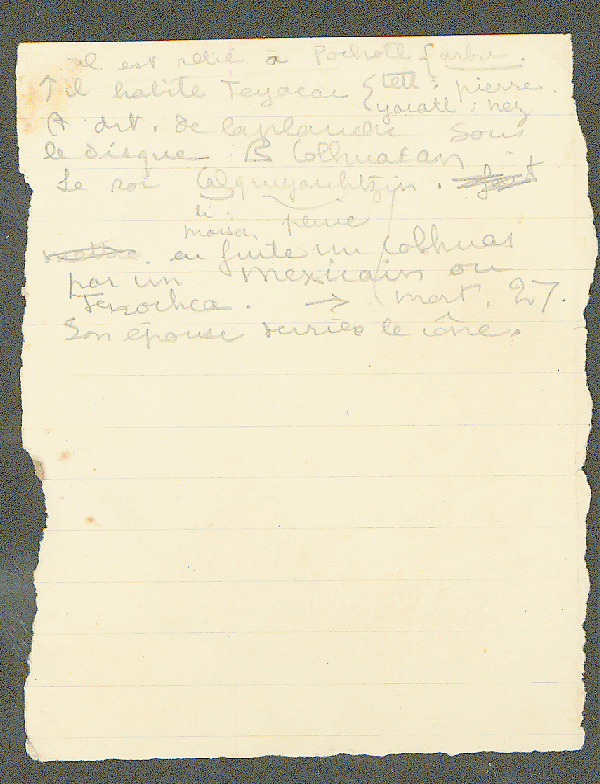 il est relié à Pochotl { arbre.
Il habite Teyacac { tetl : pierre.
yacatl : nez
A drt. de la planche Sous
le disque B Colhuacan.
Le roi Calquiyauhtzin.
maison pluie
en fuite un Colhuas
par un Mexicain ou
Texcoca. → mort. 27.
Son épouse derrière le cône.